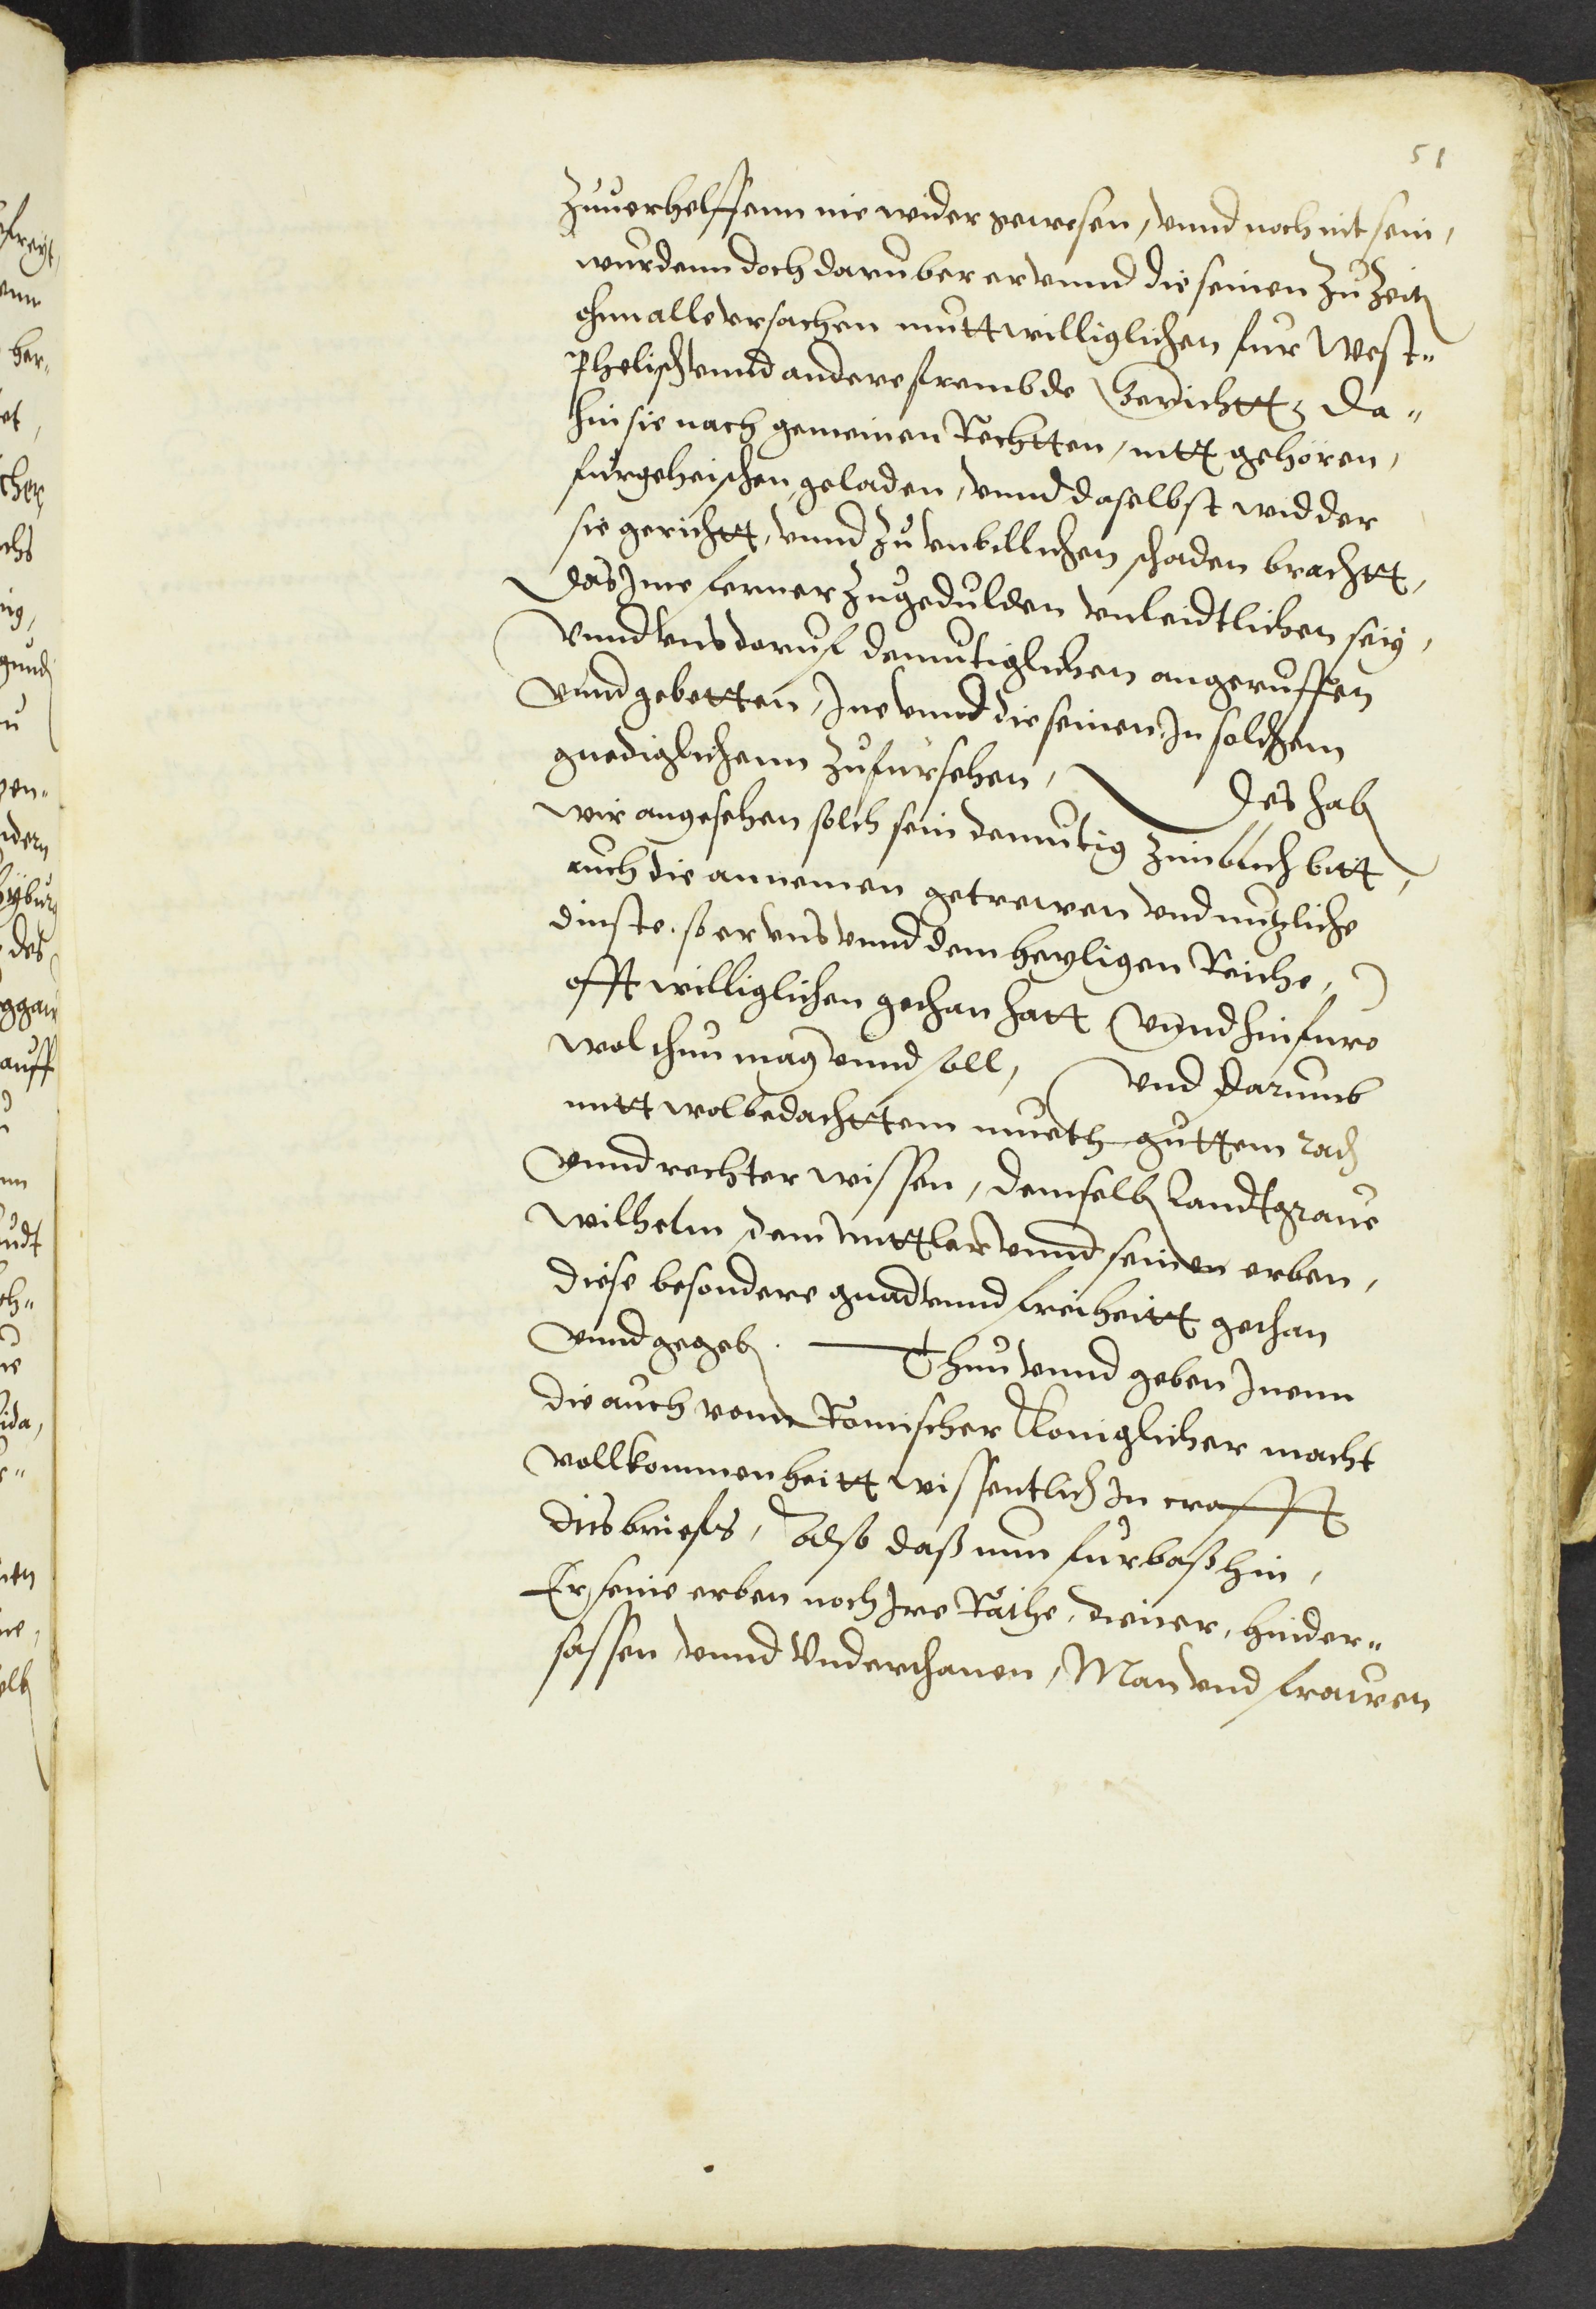 51
Zuuerhelffenn nie wider gewesen, vnnd noch nit sein,
wurdenn doch daruber er vnnd die seinen zu Zeitn
ohnn alle vrsachen muttwilliglichen fur West„
Phelisch vnnd andere frembde Gerichtt, Da„
hin sie nach gemeinen Rechtten, nitt gehören,
furgeheischen, geladen, vnnd daselbst widder
sie gerichtt, vnnd zu vnbillichen schaden brachtt,
das Ime ferner zugedulden vnleidtlichen seig,
Vnnd vns daruf demutiglichen angeruffen
vnnd gebetten, Ine vnnd die seinen In solchem
gnediglichenn zufürsehen, Des habn
wir angesehen solch sein demutig zimblich bitt,
auch die annemen getrewen vnd nutzliche
dinste. so er vns vnnd dem heyligen Reiche,
offt williglichen gethan hatt vnnd hinfuro
wol thun mag vnnd soll, Vnd darumb
mitt wolbedachttem mueth guttem rath
vnnd rechter wissen, demselbn Landtgraue
Wilhelm dem mittler vnnd seinen erben,
diese besondere gnad vnnd freiheitt gethan
vnnd gegebn. Thun vnnd geben Inenn
die auch vonn Romischer Koniglicher macht
vollkommenheitt wissentlich In crafft
dis briefs, Also daß nun furbaß hin,
Er, seine erben noch Ire Räthe, diener, hinder„
sassen vnnd Vnderthanen, Man vnd frauwen